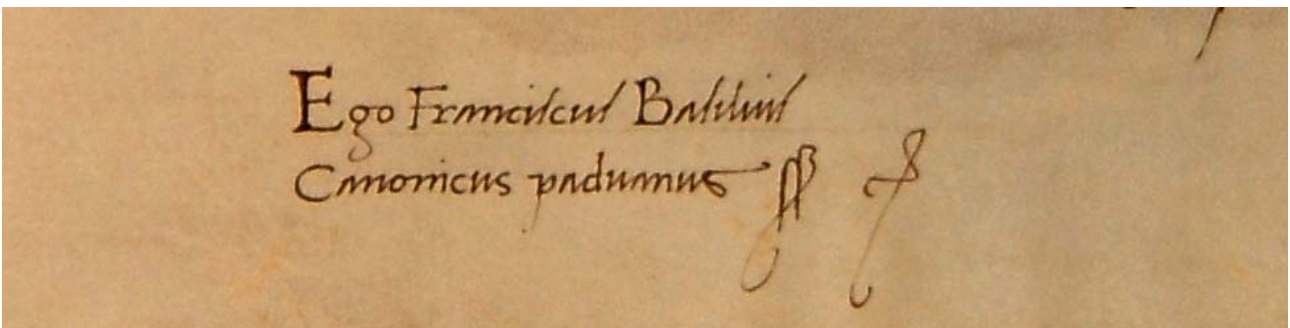 Ego Franciſcuſ Baſiliuſ
Canonicus paduanus ſſ